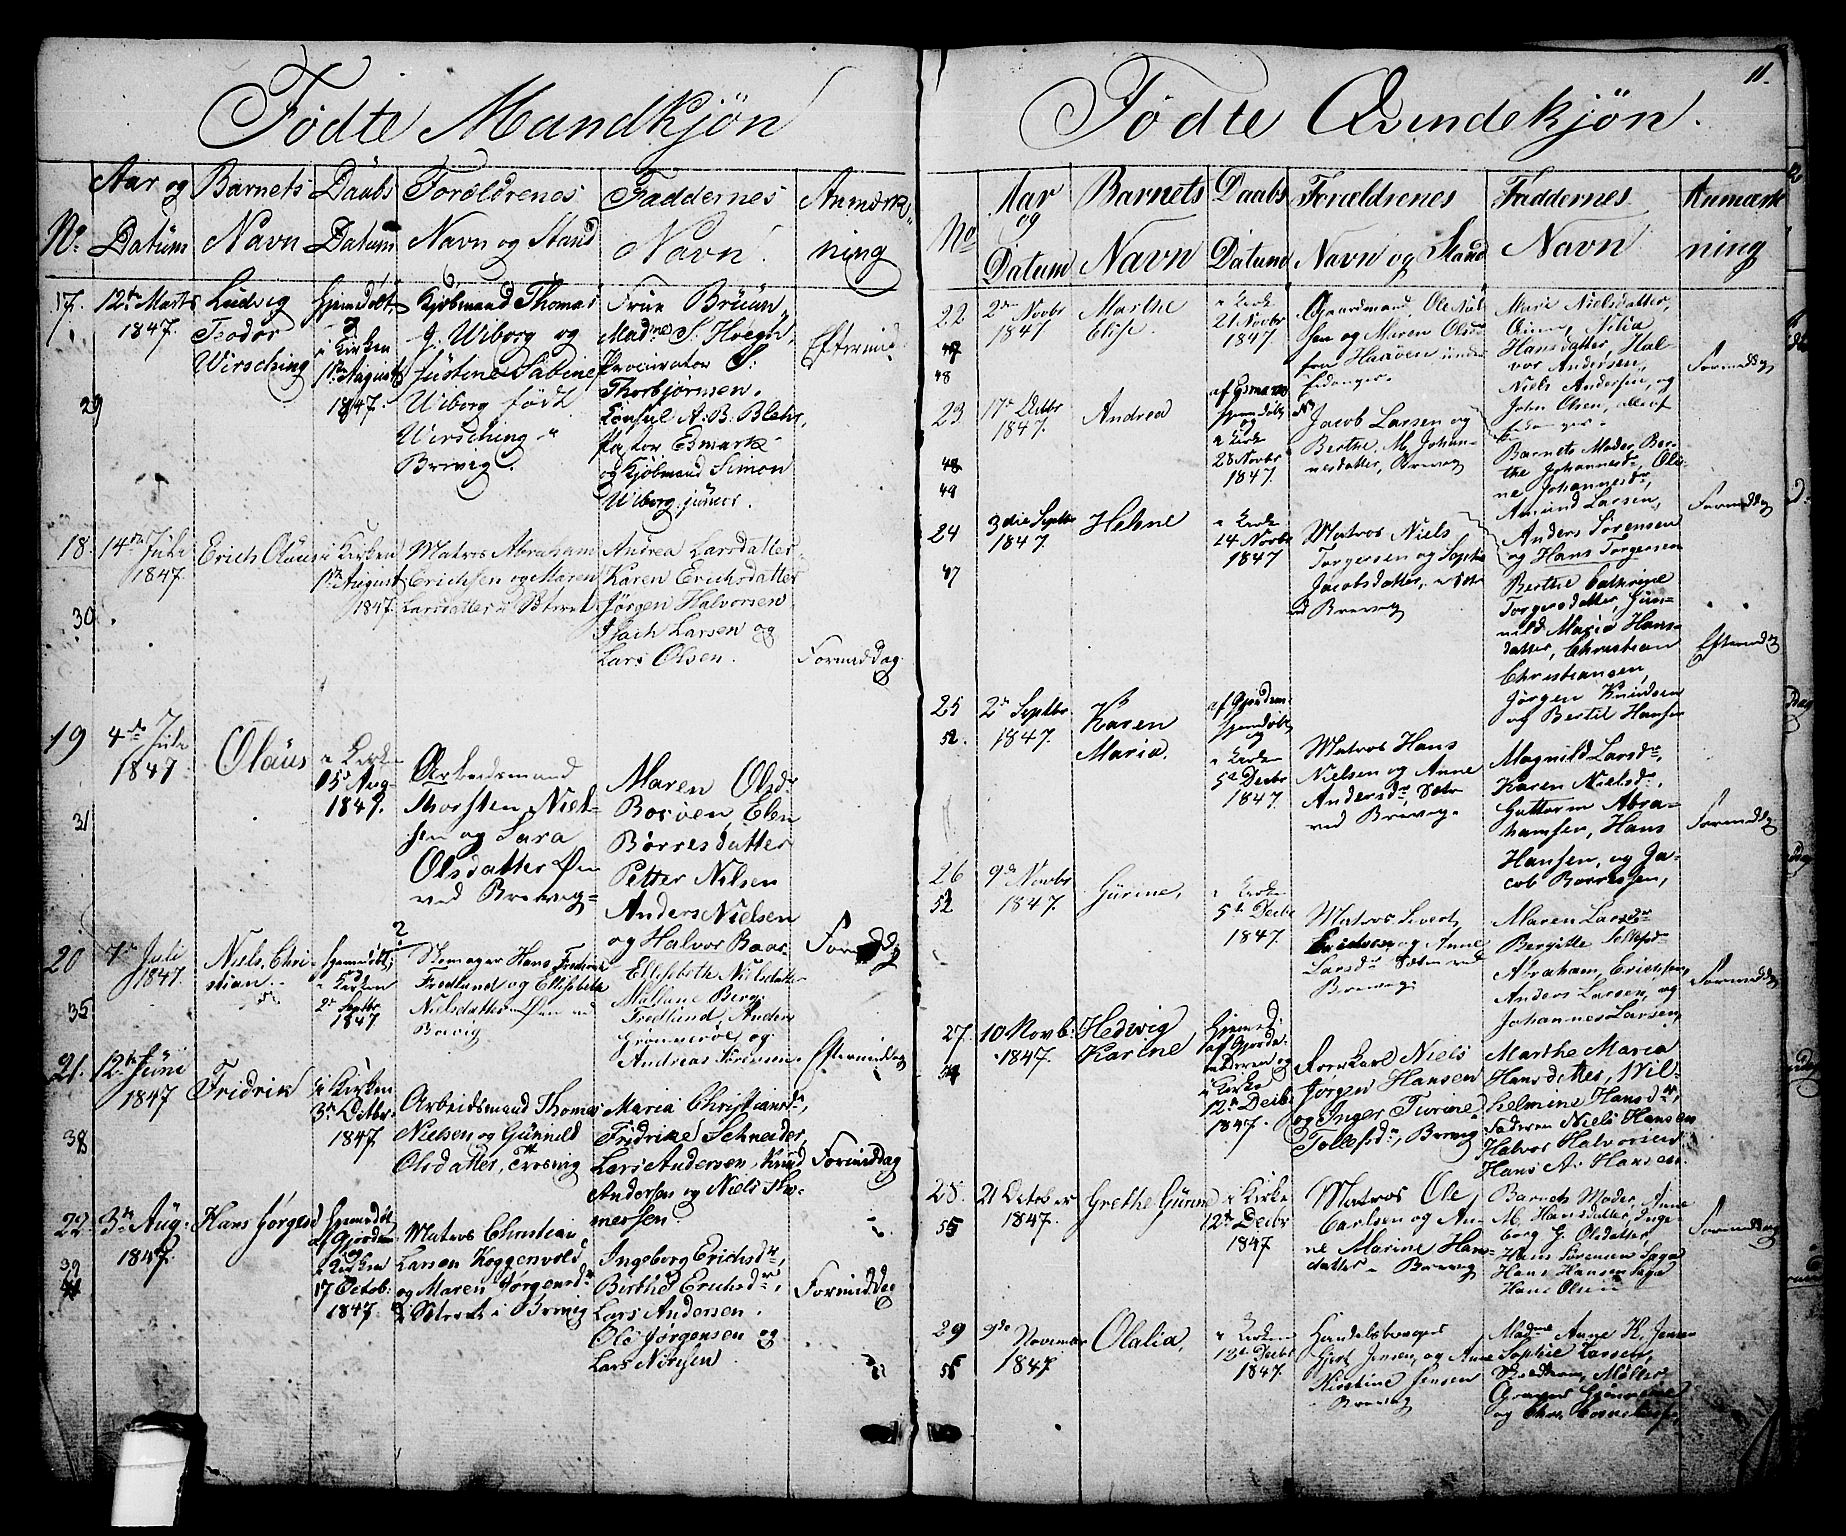 11.
Födte Mandkjön
Aar og Datum
Barnets Navn
Daabs Datum
Forældrenes Navn og Stand
Faddernes Navn.
Anmærkning
No.
17.
29
12te Marts
1847.
Ludvig
Teodor
Wirsching
Hjemdöbt,
i Kirken
1te August
1847.
Kjöbmand Thomas
J. Wiborg og
Justine Sabine
Wiborg födt
Wirsching
Brevig.
Frue Brüün,
Madme S. Hoegh,
Procurator S.
Thorbjörnsen,
Consul A. B. Blehr,
Pastor Esmark
og Kjöbmand Simon
Wiborg junior.
Eftermid.
18.
30
14de Juli
1847.
Erich Olaus
i Kirken
1te August
1847.
Matros Abraham
Erichsen og Maren
Larsdatter
Andrea Larsdatter
Karen Erichsdatter
Jörgen Halvorsen
Isach Larsen og
Lars Olsen.
Formiddag
19
31
4de Juli
1847
Olaus
i Kirk
15d Aug
1847.
Arbeidsmand
Thorsten Niel-
sen og Sara
Olsdatter Öen
ved Brevig
Maren Olsdr
Boröen, Elen
Börresdatter
Petter Nilsen
Anders Nielsen
og Halvor Baar-
20
35
7de Juli
1847.
Niels Chri-
stian.
Hjemdöbt,
i Kirken
2de Septbr
1847
Hans Fredrik
Fredlund og Ellisebeth
Nielsdatter Öen ved
Brevig
Ellisebeth Nielsdatter
Berg
Fredlund, Anders
og
Andreas
Eftermiddag
21.
38
12te Juni
1847
Fridrik
i Kirken
3de Octbr
1847.
Arbeidsmand Thomas
Nielsen og Gunneld
Olsdatter,
Maria Christiansdr,
Fridrike Schneider,
Lars Andersen, Knud
Andersen og Niels Tho-
mersen
Formiddag
22.
39
3de Aug:
1847.
Hans Jörgen
Hjemdöbt
af Gjordem
og
i Kirken
17 Octob:
1847.
Matros Christian
Larsen Koggenvold
og Maren Jörgensdr
i Brevig
Ingeborg Erichsdr,
Berthe Erichsdr,
Lars Andersen.
Ole Jörgensen og
Lars
Formiddag
Födte Qvindekjön.
No
Aar og Datum
Barnets Navn
Daabs Datum
Forældrenes Navn og Stand
Faddernes Navn
Anmærkning
22
48
2de Novbr
1847
Marthe
Elise.
i Kirke
21 Novbr
1847
Gaardmand, Ole
og Maren Olsdr
fra under
Eidanger
Marie Nielsdatter,
Hansdatter, Hal-
vor Andersen,
Niels Andersen, og
John Olsen, alle af
Eidanger
Formiddag
23
49
17de Octbr
1847.
Andrea
af Esmark
hjemdöbt
og
i Kirke
28 Novbr
1847.
Jacob Larsen og
Berthe M. Johan-
nesdatter, Brevig
Barnets Moder, Ber-
the Johannesdr, Oli-
ne Johannesdr,
Amund Larsen,
Anders Sörensen
og Hans Torgersen
Formiddag
24
47
3die Septbr
1847.
Helene
i Kirke
14 Novbr
1847.
Matros Niels
Torgersen og
Jacobsdatter,
ved Brevig
Berthe Cathrine
Torgersdatter, Gun-
nild Maria Hans-
datter, Christian
Christiansen,
Jörgen Knudsen
og Bertil Hansen
Eftermiddag
25
52.
2de Septbr.
1847.
Karen
Maria.
af Gjordem
hjemdöbt
og
i Kirke
5te Decbr
1847.
Matros Hans
Nielsen og Anne
Andersdr,
ved Brevig
Magnild Larsdr
Karen Nielsdr
Guttorm Abra-
hamsen, Hans
Hansen, og Ja-
cob Borresen,
Formiddag
26
52
9de Novbr
1847.
Gurine,
i Kirke
5te Decbr
1847.
Matros Sivert
og Anne
Larsdr ved
Brevig
Maren Larsdr
Bergitte
Abraham Erichsen,
Anders Larsen, og
Johannes Larsen,
Formiddag
27.
10 Novb:
1847.
Hedvig
Karine
Hjemd.
af Gjorde-
moderen og
i Kirke
12te Decbr
1847.
Niels
Jörgen Hansen
og Inger Turine
Tollefsdr, Brevig
Marthe Maria
Hansdatter, Wil-
helmine Hansdr
Faderen Niels Hansen
Halvor Halvorsen
Hans A. Hansen.
28.
55
21 October
1847.
Grethe Gurine
i Kirke
12te Decbr
1847
Matros Ole
Carlsen og An-
ne Marine Hans-
datter Brevig
Barnets Moder, Anne
M. Hansdatter, Inge-
borg G. Olsdatter,
Hans Sörensen
Hans Hansen
Hans Olsen
Formiddag
29
55
9de
November
1847
Olalia,
i Kirken
12te Decbr
1847.
Handelsborger
Gjert Jensen, og Anne
Kirstine Jensen
Brevig
Madme Anne K. Jensen
Sophie Larsen,
Möller
og Chr.